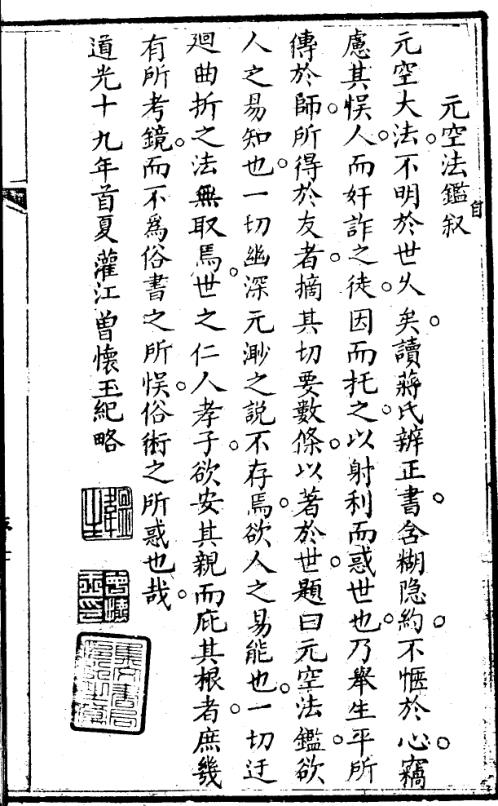 元空法鑑叙
自
元空大法不明於世久矣讀蔣氏辨正書含糊隐約不愜於心竊
慮其悮人而奸詐之徒因而托之以射利而惑世也乃舉生平所
傳於師所得於友者摘其切要數條以著於世題曰元空法鑑欲
人之易知也一切幽深元渺之説不存焉欲人之易能也一切迂
廻曲折之法無取焉世之仁人孝子欲安其親而庇其根者庶幾
有所考鏡而不爲俗書之所悮俗術之所惑也哉
道光十九年首夏灌江曽懐玉紀略